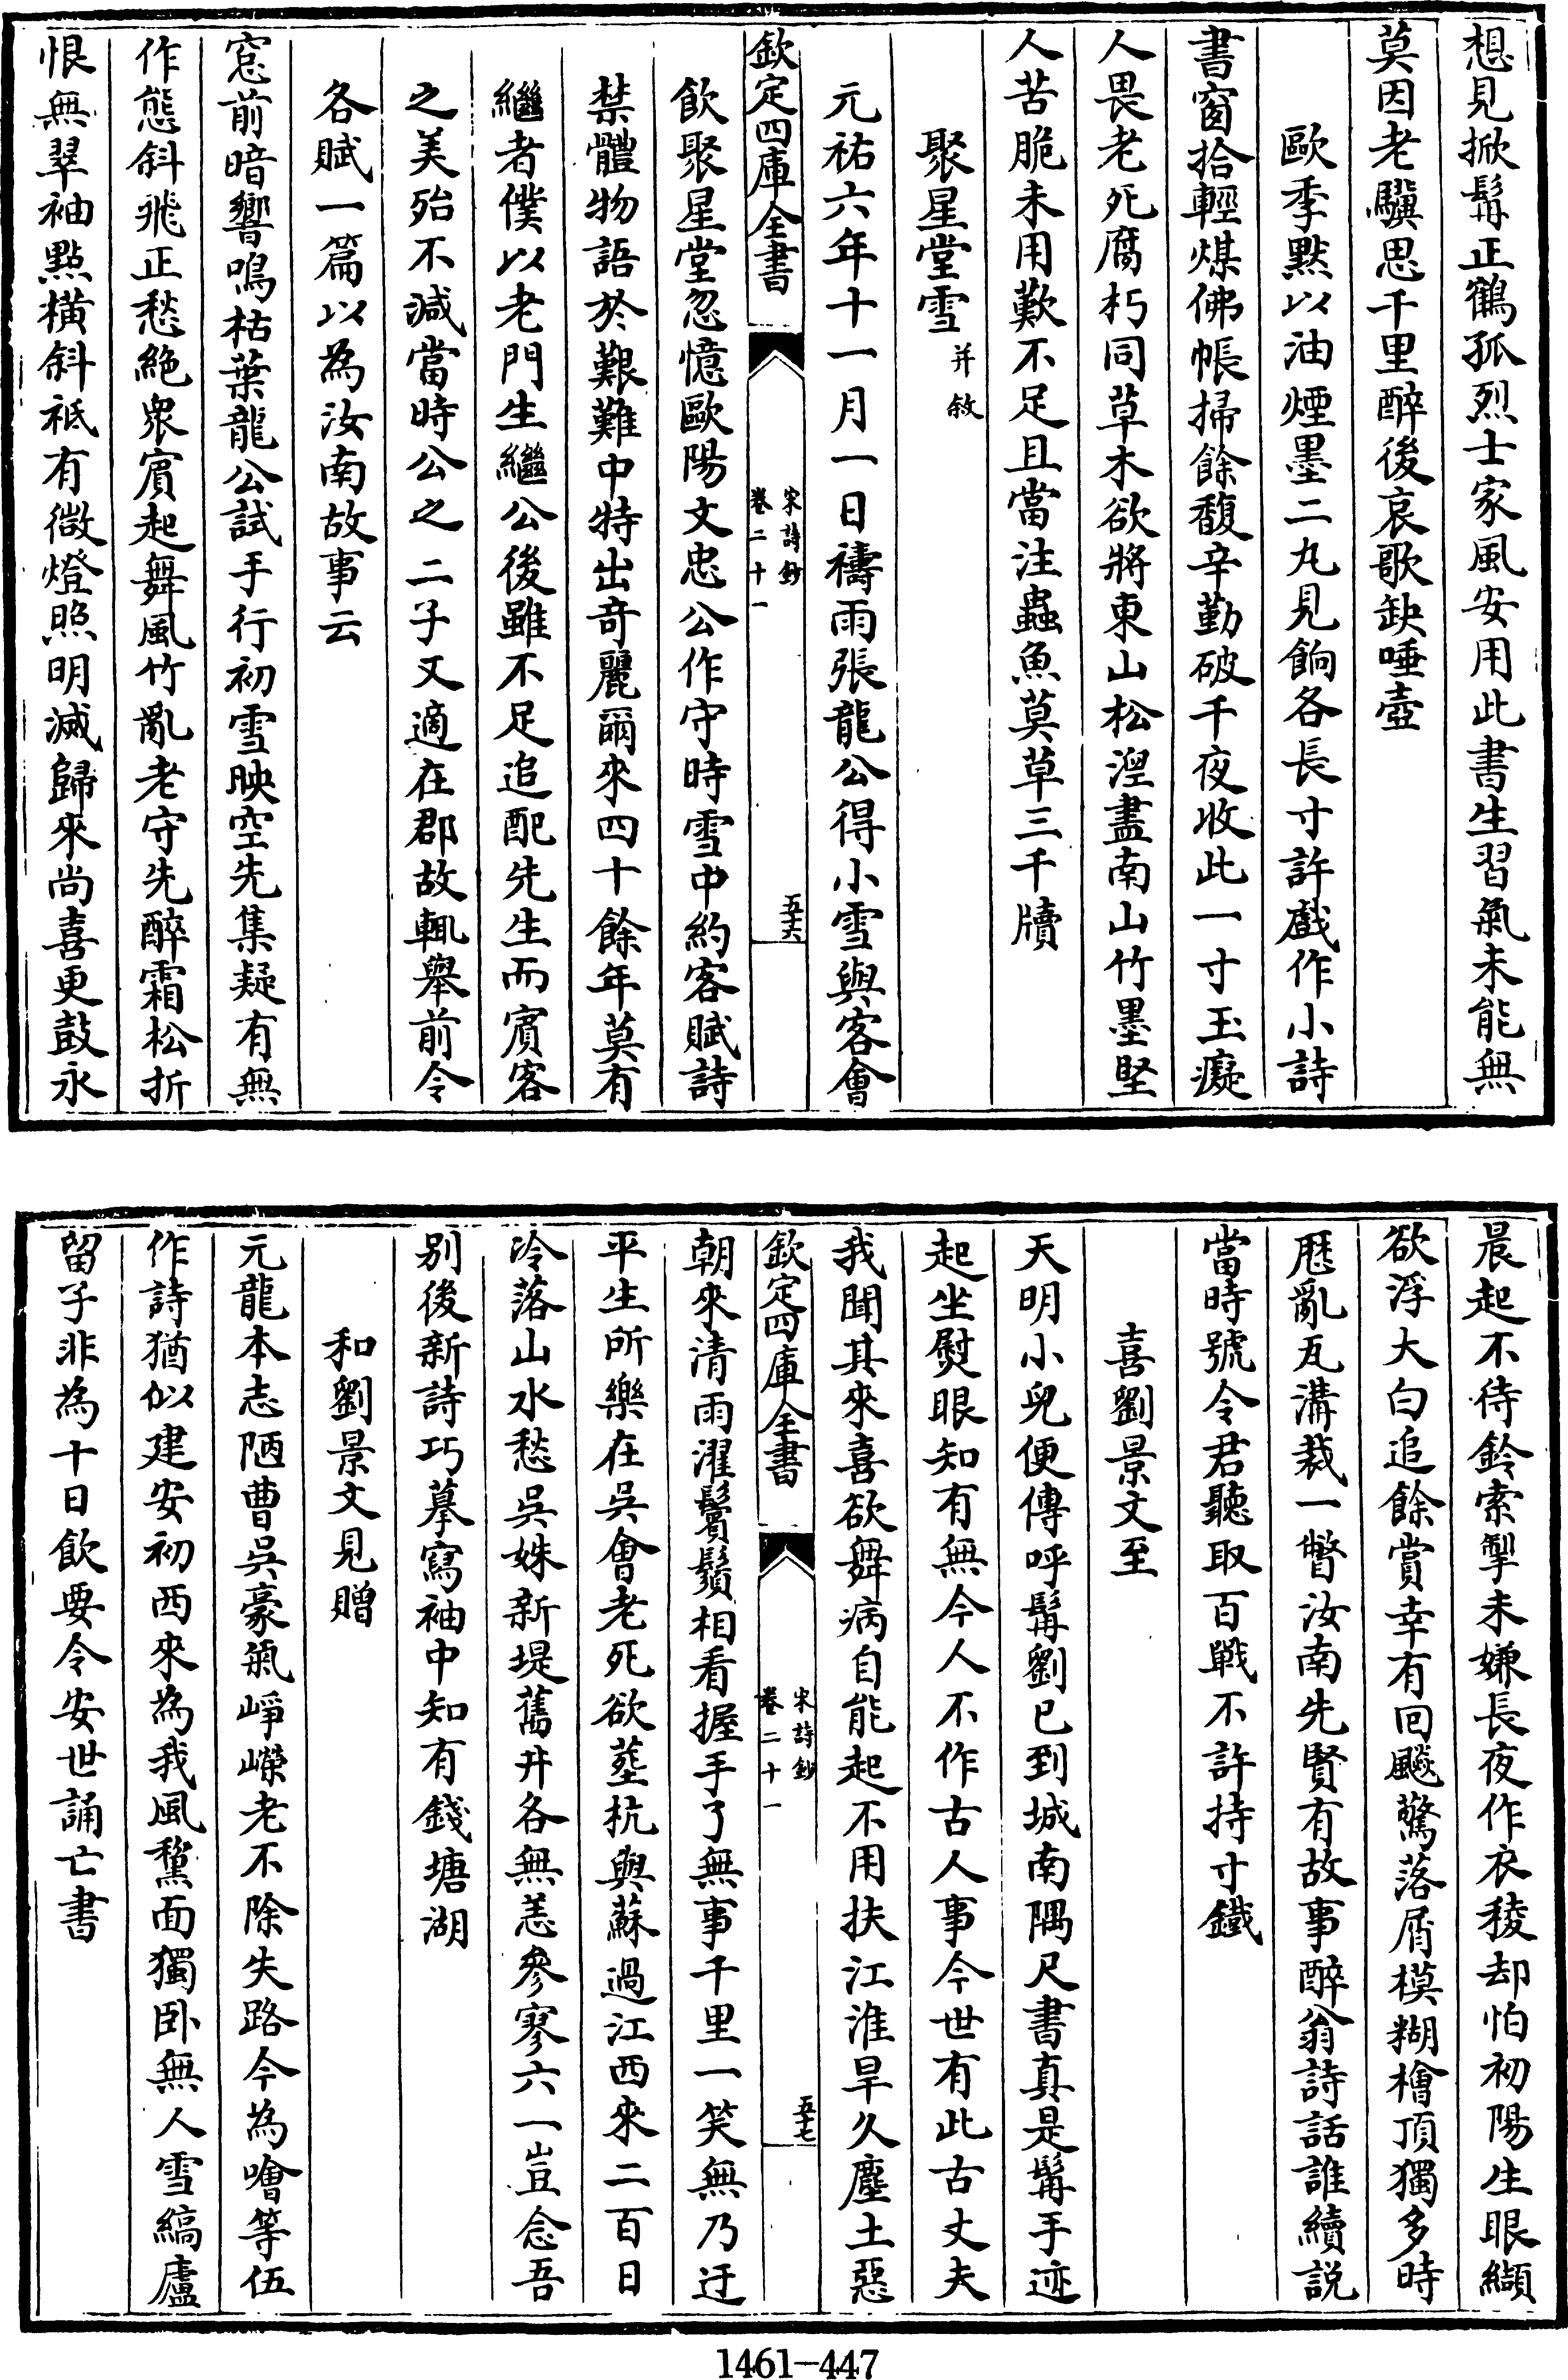 想見掀髯正鶴孤烈士家風安用此書生習氣未能無
莫因老驥思千里醉後哀歌缺唾壺
歐季默以油煙墨二丸見餉各長寸許戲作小詩
書窗拾輕煤佛帳掃餘馥辛勤破千夜收此一寸玉癡
人畏老死腐朽同草木欲將東山松涅盡南山竹墨堅
人苦脆未用歎不足且當注蟲魚莫草三千牘
聚星堂雪并敘
元祐六年十一月一日禱雨張龍公得小雪與客會
欽定四庫全書
宋詩鈔
卷二十一
五十六
飲聚星堂忽憶歐陽文忠公作守時雪中約客賦詩
禁體物語於艱難中特出奇麗爾來四十餘年莫有
繼者僕以老門生繼公後雖不足追配先生而賓客
之美殆不減當時公之二子又適在郡故輒舉前令
各賦一篇以為汝南故事云
窓前暗響鳴枯葉龍公試手行初雪映空先集疑有無
作態斜飛正愁絶衆賓起舞風竹亂老守先醉霜松折
恨無翠袖點橫斜祗有微燈照明滅歸來尚喜更鼓永
晨起不待鈴索掣未嫌長夜作衣稜却怕初陽生眼纈
欲浮大白追餘賞幸有回飈驚落屑模糊檜頂獨多時
歴亂瓦溝裁一瞥汝南先賢有故事醉翁詩話誰續説
當時號令君聽取百戰不許持寸鐵
喜劉景文至
天明小兒便傳呼髯劉已到城南隅尺書真是髯手迹
起坐熨眼知有無今人不作古人事今世有此古丈夫
我聞其來喜欲舞病自能起不用扶江淮旱久塵土惡
欽定四庫全書
宋詩鈔
卷二十一
五十七
朝來清雨濯鬢鬚相看握手了無事千里一笑無乃迂
平生所樂在吳會老死欲葬杭與蘇過江西來二百日
冷落山水愁吳姝新堤舊井各無恙參寥六一豈念吾
别後新詩巧摹寫袖中知有錢塘湖
和劉景文見贈
元龍本志陋曹吳豪氣崢嶸老不除失路今為噲等伍
作詩猶似建安初西來為我風黧面獨卧無人雪縞廬
留子非為十日飲要令安世誦亡書
1461-447